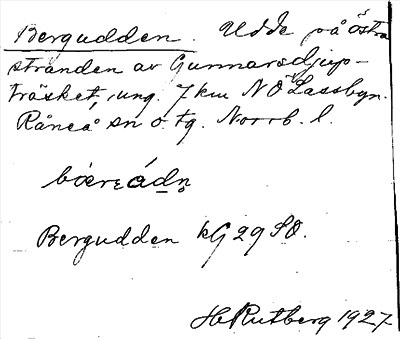 Bergudden. Udde på östra
stranden av Gunnarsdjup-
träsket, ung. 7 km NO Lassbyn.
Råneå sn o. tg. Norrb. l.
Bergudden kG 29 SO.
H Rutberg 1927